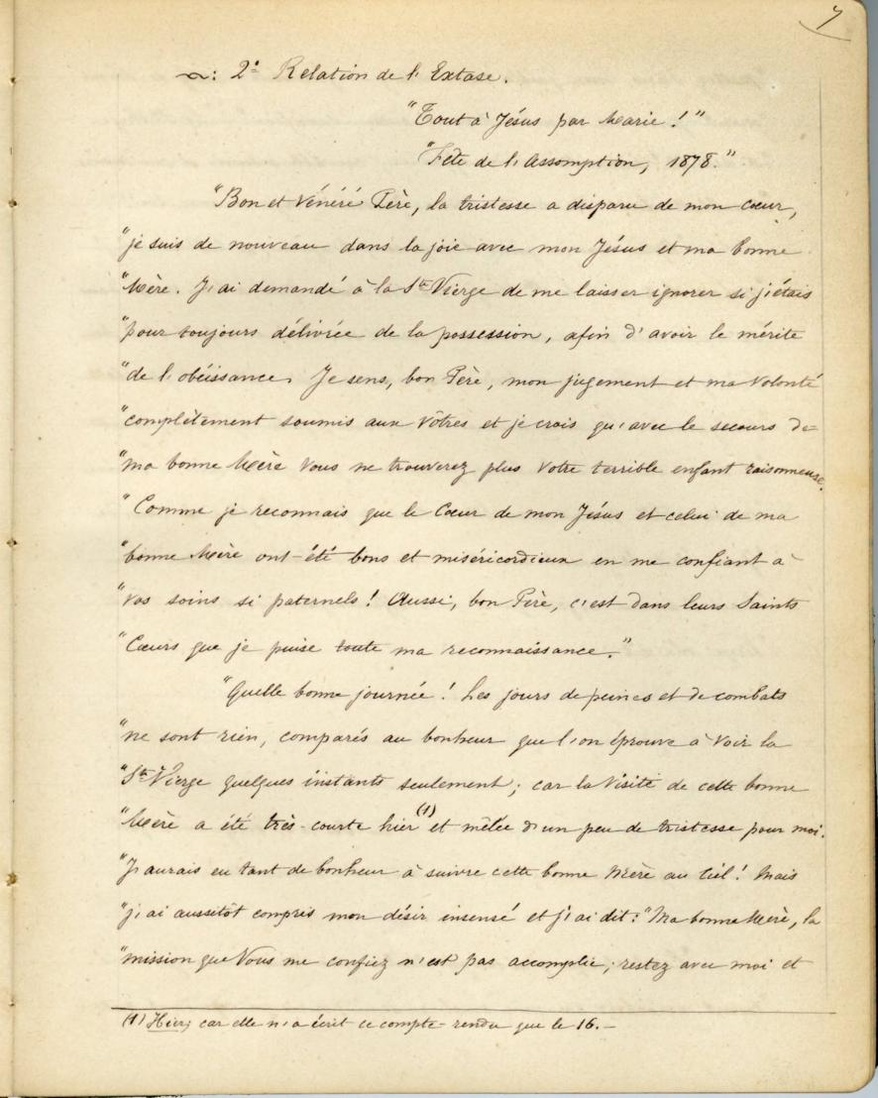 7
2° Relation de l'Extase.
"Tout à Jésus par Marie!"
"Fête de l'Assomption, 1878."
"Bon et Vénéré Père, la tristesse a disparu de mon cœur,
"je suis de nouveau dans la joie avec mon Jésus et ma bonne
"Mère. J'ai demandé à la Ste Vierge de me laisser ignorer si j'étais
"pour toujours délivrée de la possession, afin d'avoir le mérite
"de l'obéissance. Je sens, bon Père, mon jugement et ma volonté
"complètement soumis aux vôtres et je crois qu'avec le secours de
"ma bonne Mère vous ne trouverez plus votre terrible enfant raisonneuse.
"Comme je reconnais que le Cœur de mon Jésus et celui de ma
"bonne Mère ont été bons et miséricordieux en me confiant à
"vos soins si paternels! Aussi, bon Père, c'est dans leurs Saints
"Cœurs que je puise toute ma reconnaissance."
"Quelle bonne journée! Les jours de peines et de combats
"ne sont rien, comparés au bonheur que l'on éprouve à voir la
"Ste Vierge quelques instants seulement; car la visite de cette bonne
"Mère a été très-courte hier (1) et mêlée d'un peu de tristesse pour moi.
"J'aurais eu tant de bonheur à suivre cette bonne Mère au Ciel! Mais
"j'ai aussitôt compris mon désir insensé et j'ai dit: "Ma bonne Mère, la
"mission que Vous me confiez n'est pas accomplie; restez avec moi et
(1) Hier; car elle n'a écrit ce compte-rendu que le 16.—